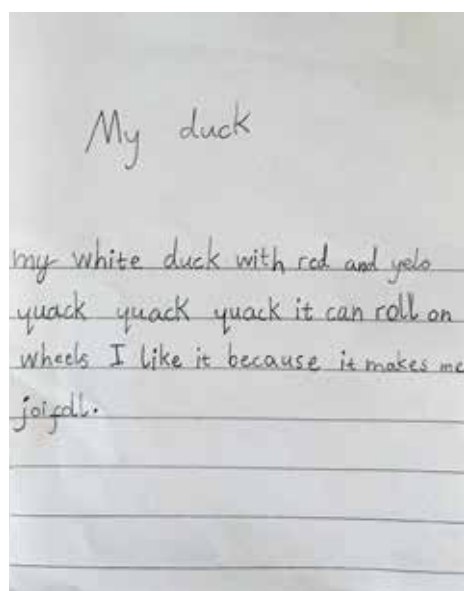 My duck
my white duck with red and yelo
quack quack quack it can roll on
wheels I like it because it makes me
joifoll.